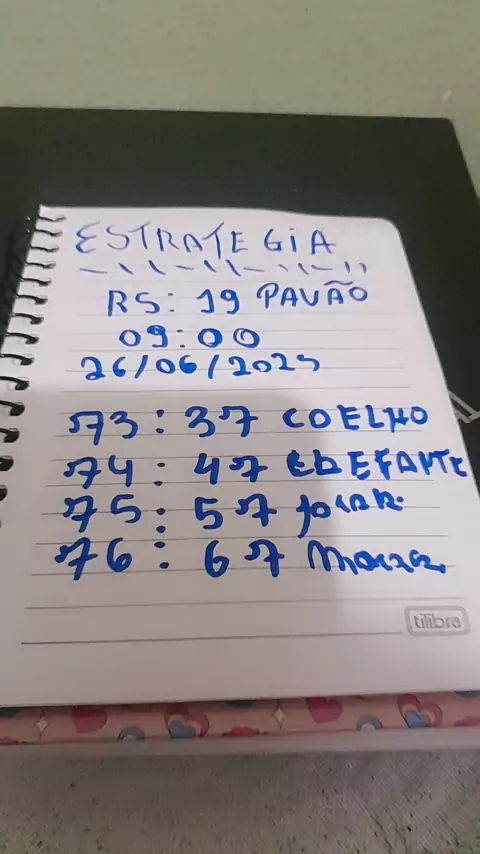 ESTRATEGIA
RS: 19 PAVÃO
09:00
26/06/2025
73: 37 COELHO
74: 47 ELEFANTE
75: 57
76: 67
tilibra